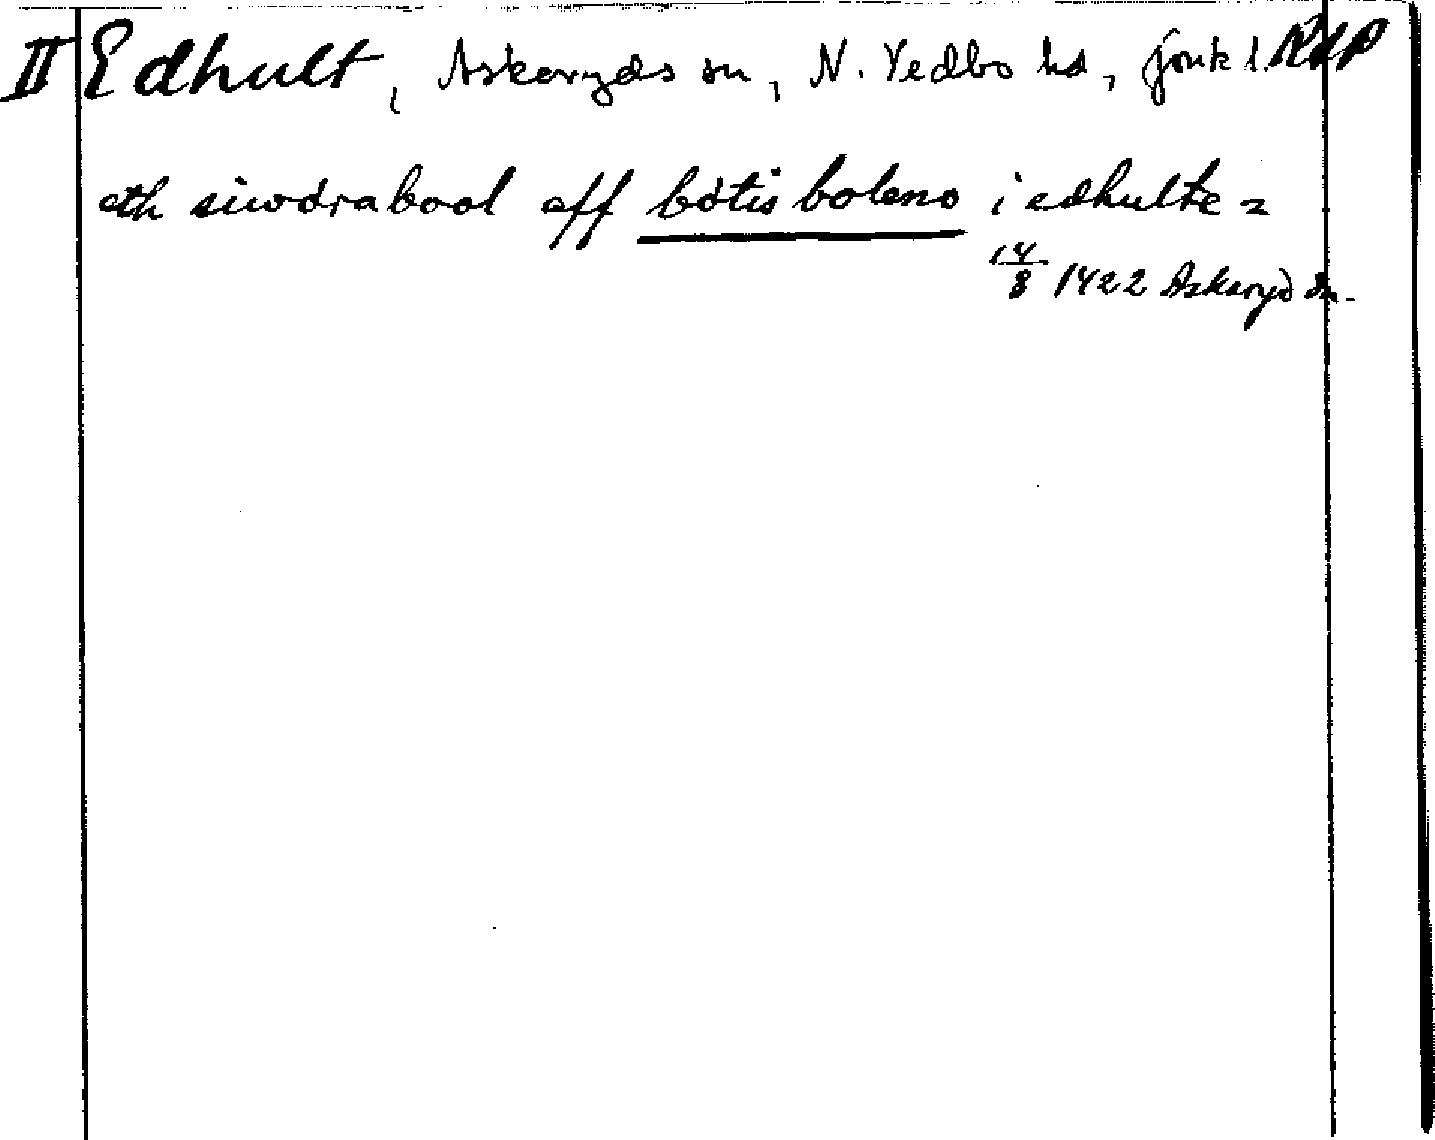 II Edhult, Askeryds sn, N. Vedbo hd, Jönk l. RAP
eth siwdrabool aff bötis boleno i edhulte =
14/8 1422 Askeryd sn.